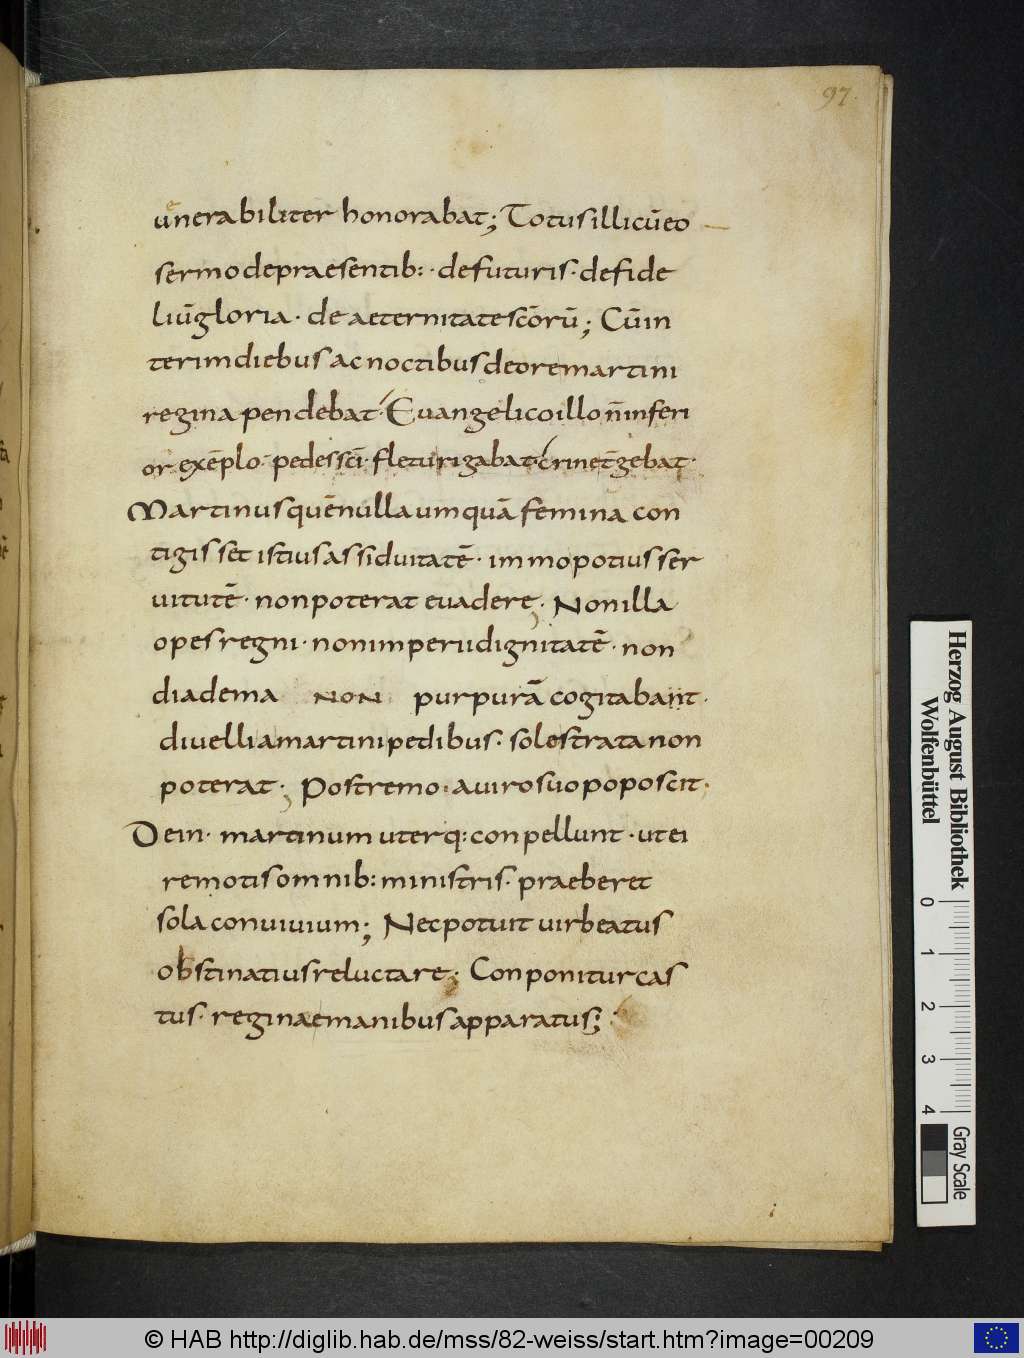 97.
uēnerabiliter honorabat; Totus illi cū eo
sermo de praesentib:· de futuris· de fide
liū gloria· de aeternitate scōrū; Cū in
terim diebus ac noctibus de ore martini
regina pendebat· Euangelico illo n̄ inferi
or exēplo· pedes sc̄i· fletu rigabat· crine t̄gebat·
Martinus quē nulla umquā femina con
tigisset istius assiduitatē· immo potius ser
uitutē· non poterat euadere; Non illa
opes regni· non imperii dignitatē· non
diadema NON purpurā cogitabant·
diuelli a martini pedibus· solestrata non
poterat; Postremo· a uiro suo poposcit·
Dein· martinum uterq: conpellunt· ut ei
remotis omnib: ministris· praeberet
sola conuiuium; Nec potuit uir beatus
obstinatius reluctare; Conponitur cas
tus· reginae manibus apparatus;
Herzog August Bibliothek
Wolfenbüttel
0 1 2 3 4
Gray Scale
© HAB http://diglib.hab.de/mss/82-weiss/start.htm?image=00209